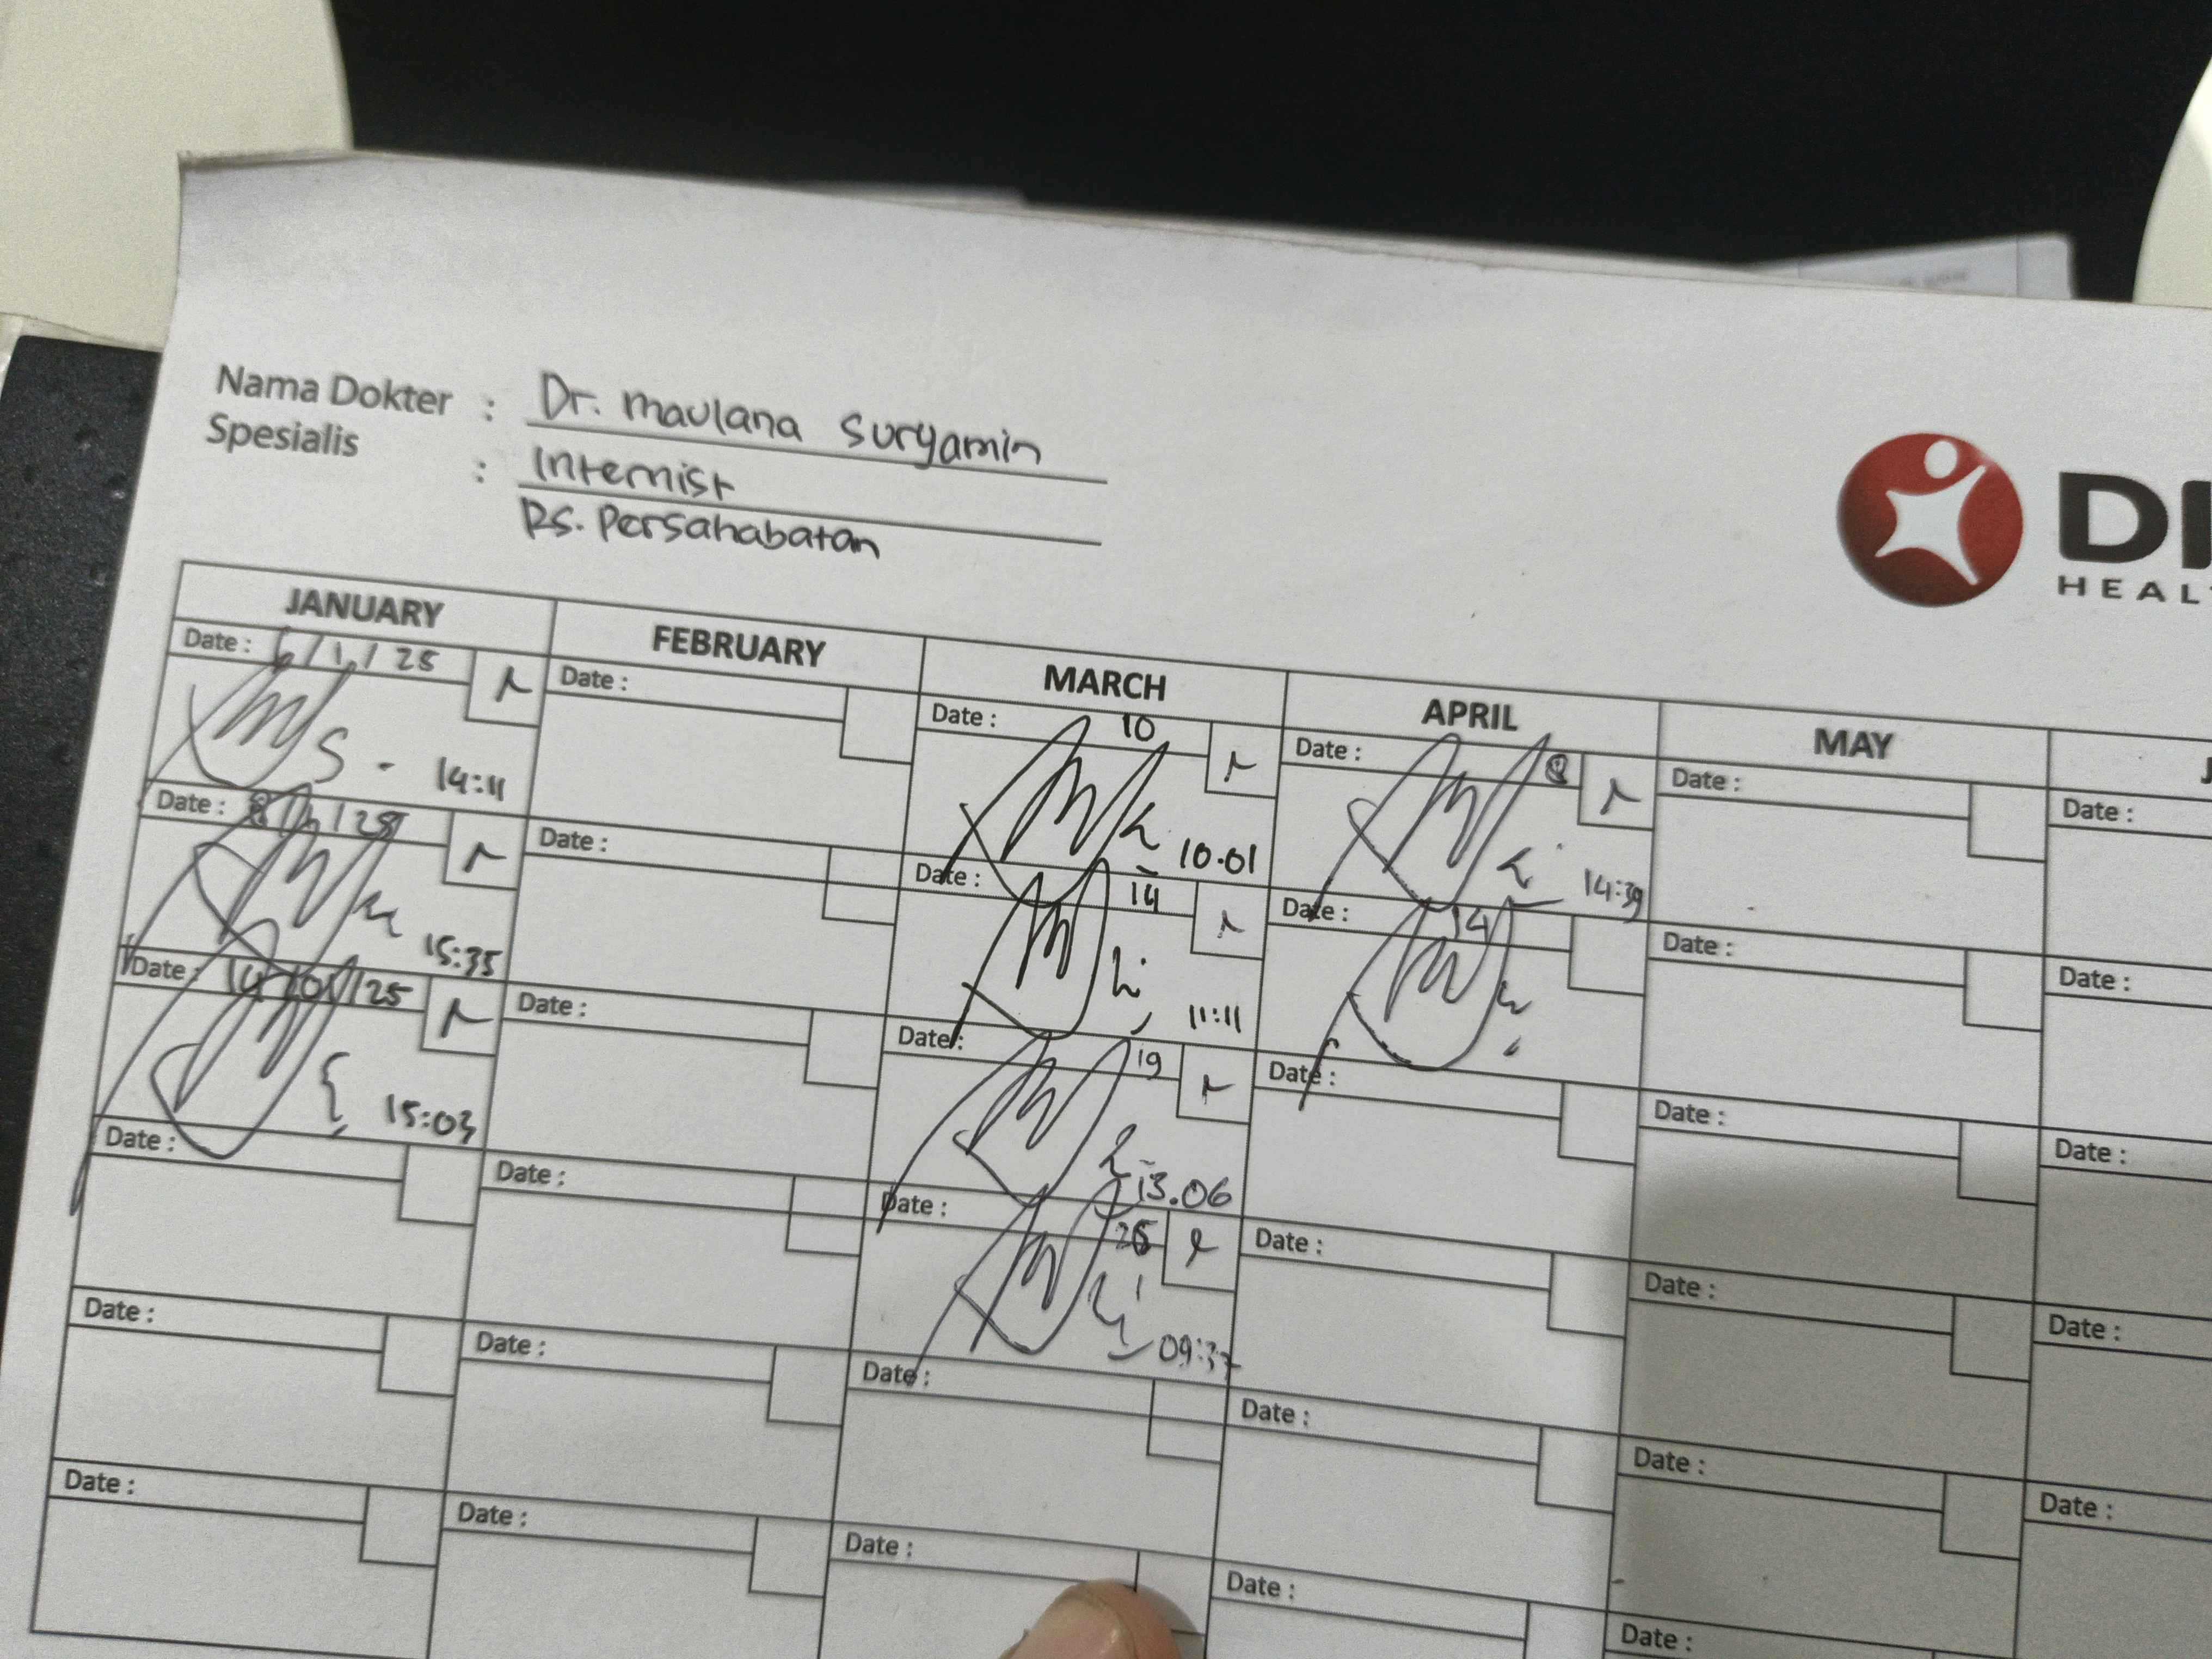 Nama Dokter : Dr. maulana suryamin
Spesialis : Internist
Rs. Persahabatan
DI
HEAL
JANUARY FEBRUARY MARCH APRIL MAY J
Date : 6/1/25 Date : Date : 10 Date : 8 Date : Date :
14:11 10.01 14:39
Date : 8/1/25 Date : Date : 14 Date : 14 Date : Date :
15:35 11:11
Date : 14/01/25 Date : Date : 19 Date : Date : Date :
15:03 13.06
Date : Date : Date : Date : Date : Date :
09:37
Date : Date : Date : Date : Date : Date :
Date : Date : Date : Date : Date :